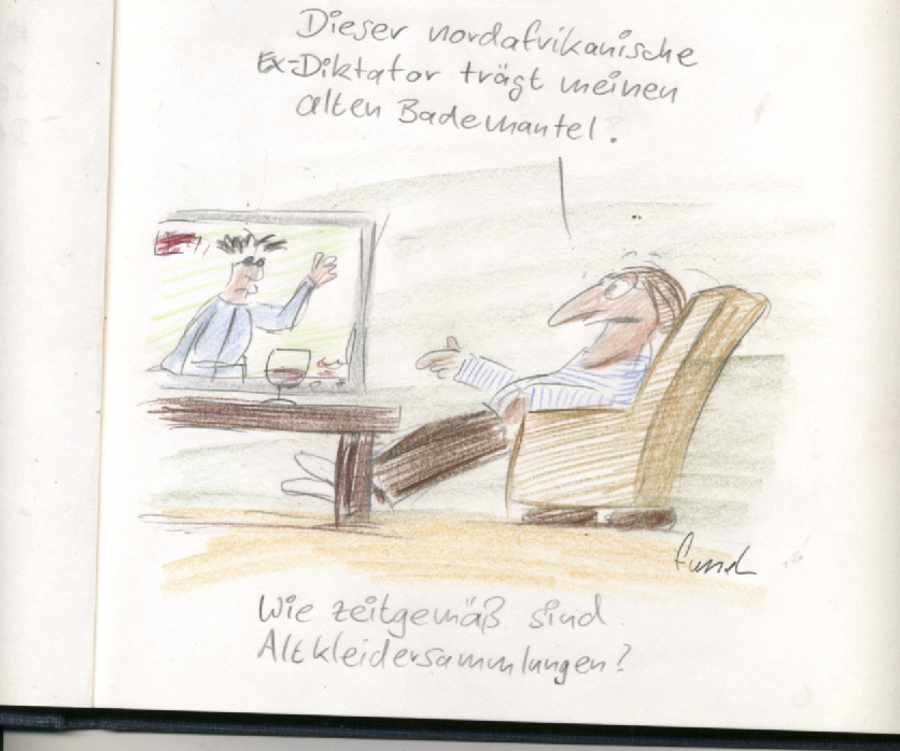 Dieser nordafrikanische
Ex-Diktator trägt meinen
alten Bademantel.
Wie zeitgemäß sind
Altkleidersammlungen?